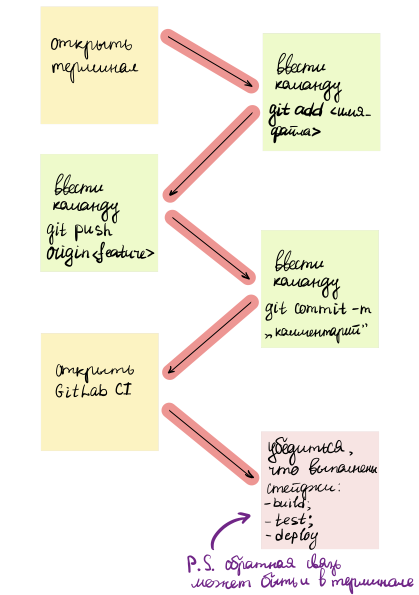 открыть
терминал
ввести
команду
git add <имя_
файла>
ввести
команду
git push
origin<feature>
ввести
команду
git commit -m
„комментарий"
открыть
GitLab CI
убедиться,
что выполнены
стейджи:
-build;
-test;
-deploy
P.S. обратная связь
может быть и в терминале